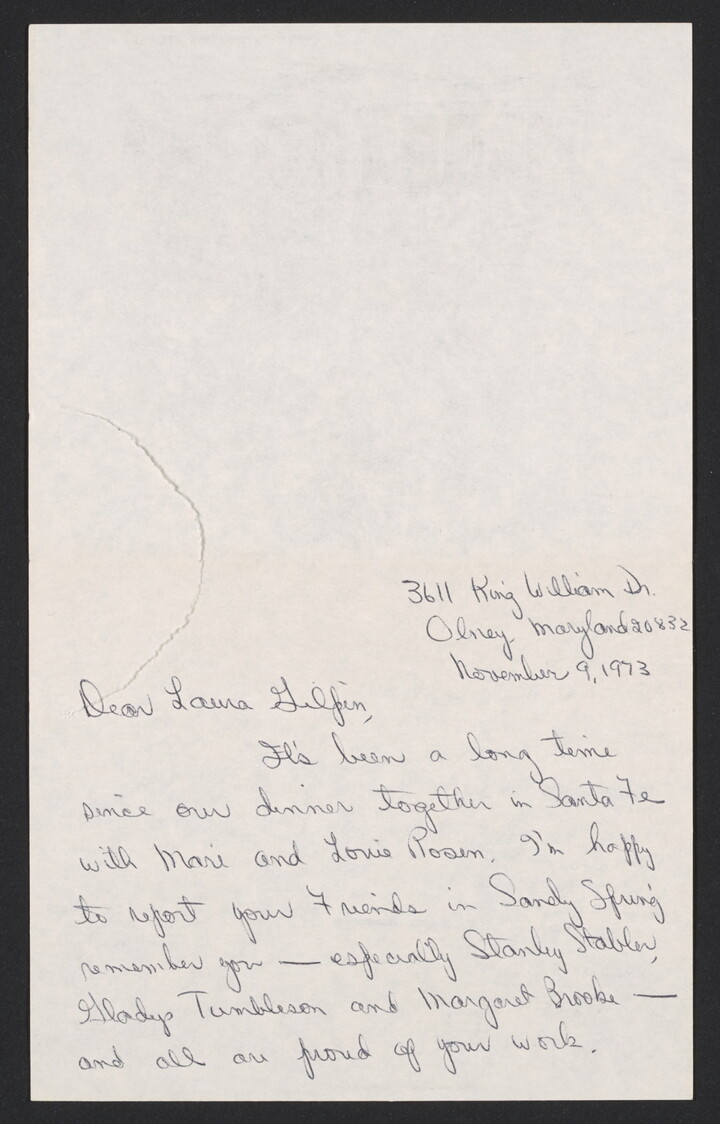 3611 King William Dr.
Olney, Maryland 20832
November 9, 1973
Dear Laura Gilpin,
It's been a long time
since our dinner together in Santa Fe
with Mari and Louie Rosen. I'm happy
to report your Friends in Sandy Spring
remember you — especially Stanley Stabler,
Gladys Tumbleson and Margaret Brooke —
and all are proud of your work.